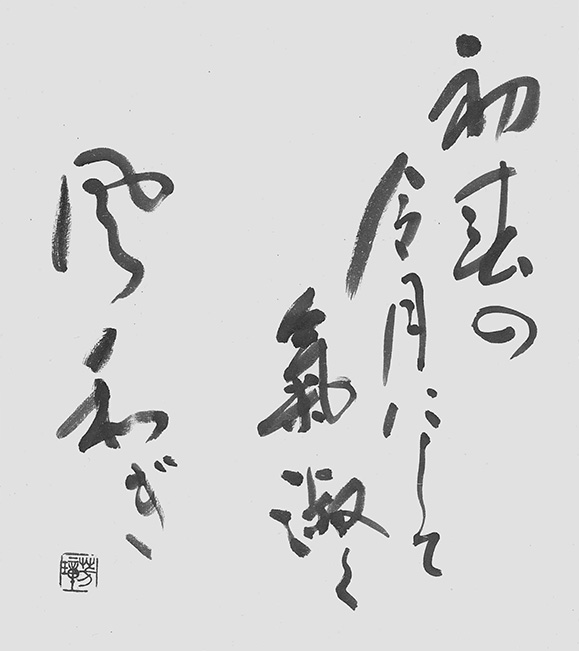 初春の
令月にして
氣淑く
風和ぎ